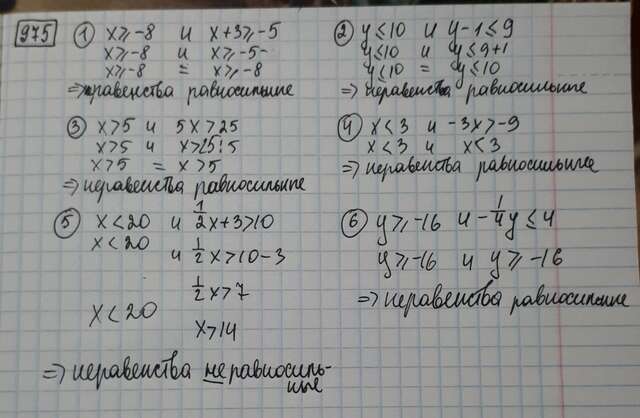 975 ① x ⩾ -8 и x+3 ⩾ -5
x ⩾ -8 и x ⩾ -5-
x ⩾ -8 = x ⩾ -8
=> неравенства равносильные
② y ⩽ 10 и y-1 ⩽ 9
y ⩽ 10 и y ⩽ 9+1
y ⩽ 10 = y ⩽ 10
=> неравенства равносильные
③ x > 5 и 5x > 25
x > 5 и x > 25:5
x > 5 = x > 5
=> неравенства равносильные
④ x < 3 и -3x > -9
x < 3 и x < 3
=> неравенства равносильные
⑤ x < 20 и 1/2x+3 > 10
x < 20 и 1/2x > 10-3
1/2x > 7
x < 20
x > 14
=> неравенства неравносиль-
ные
⑥ y ⩾ -16 и -1/4y ⩽ 4
y ⩾ -16 и y ⩾ -16
=> неравенства равносильные